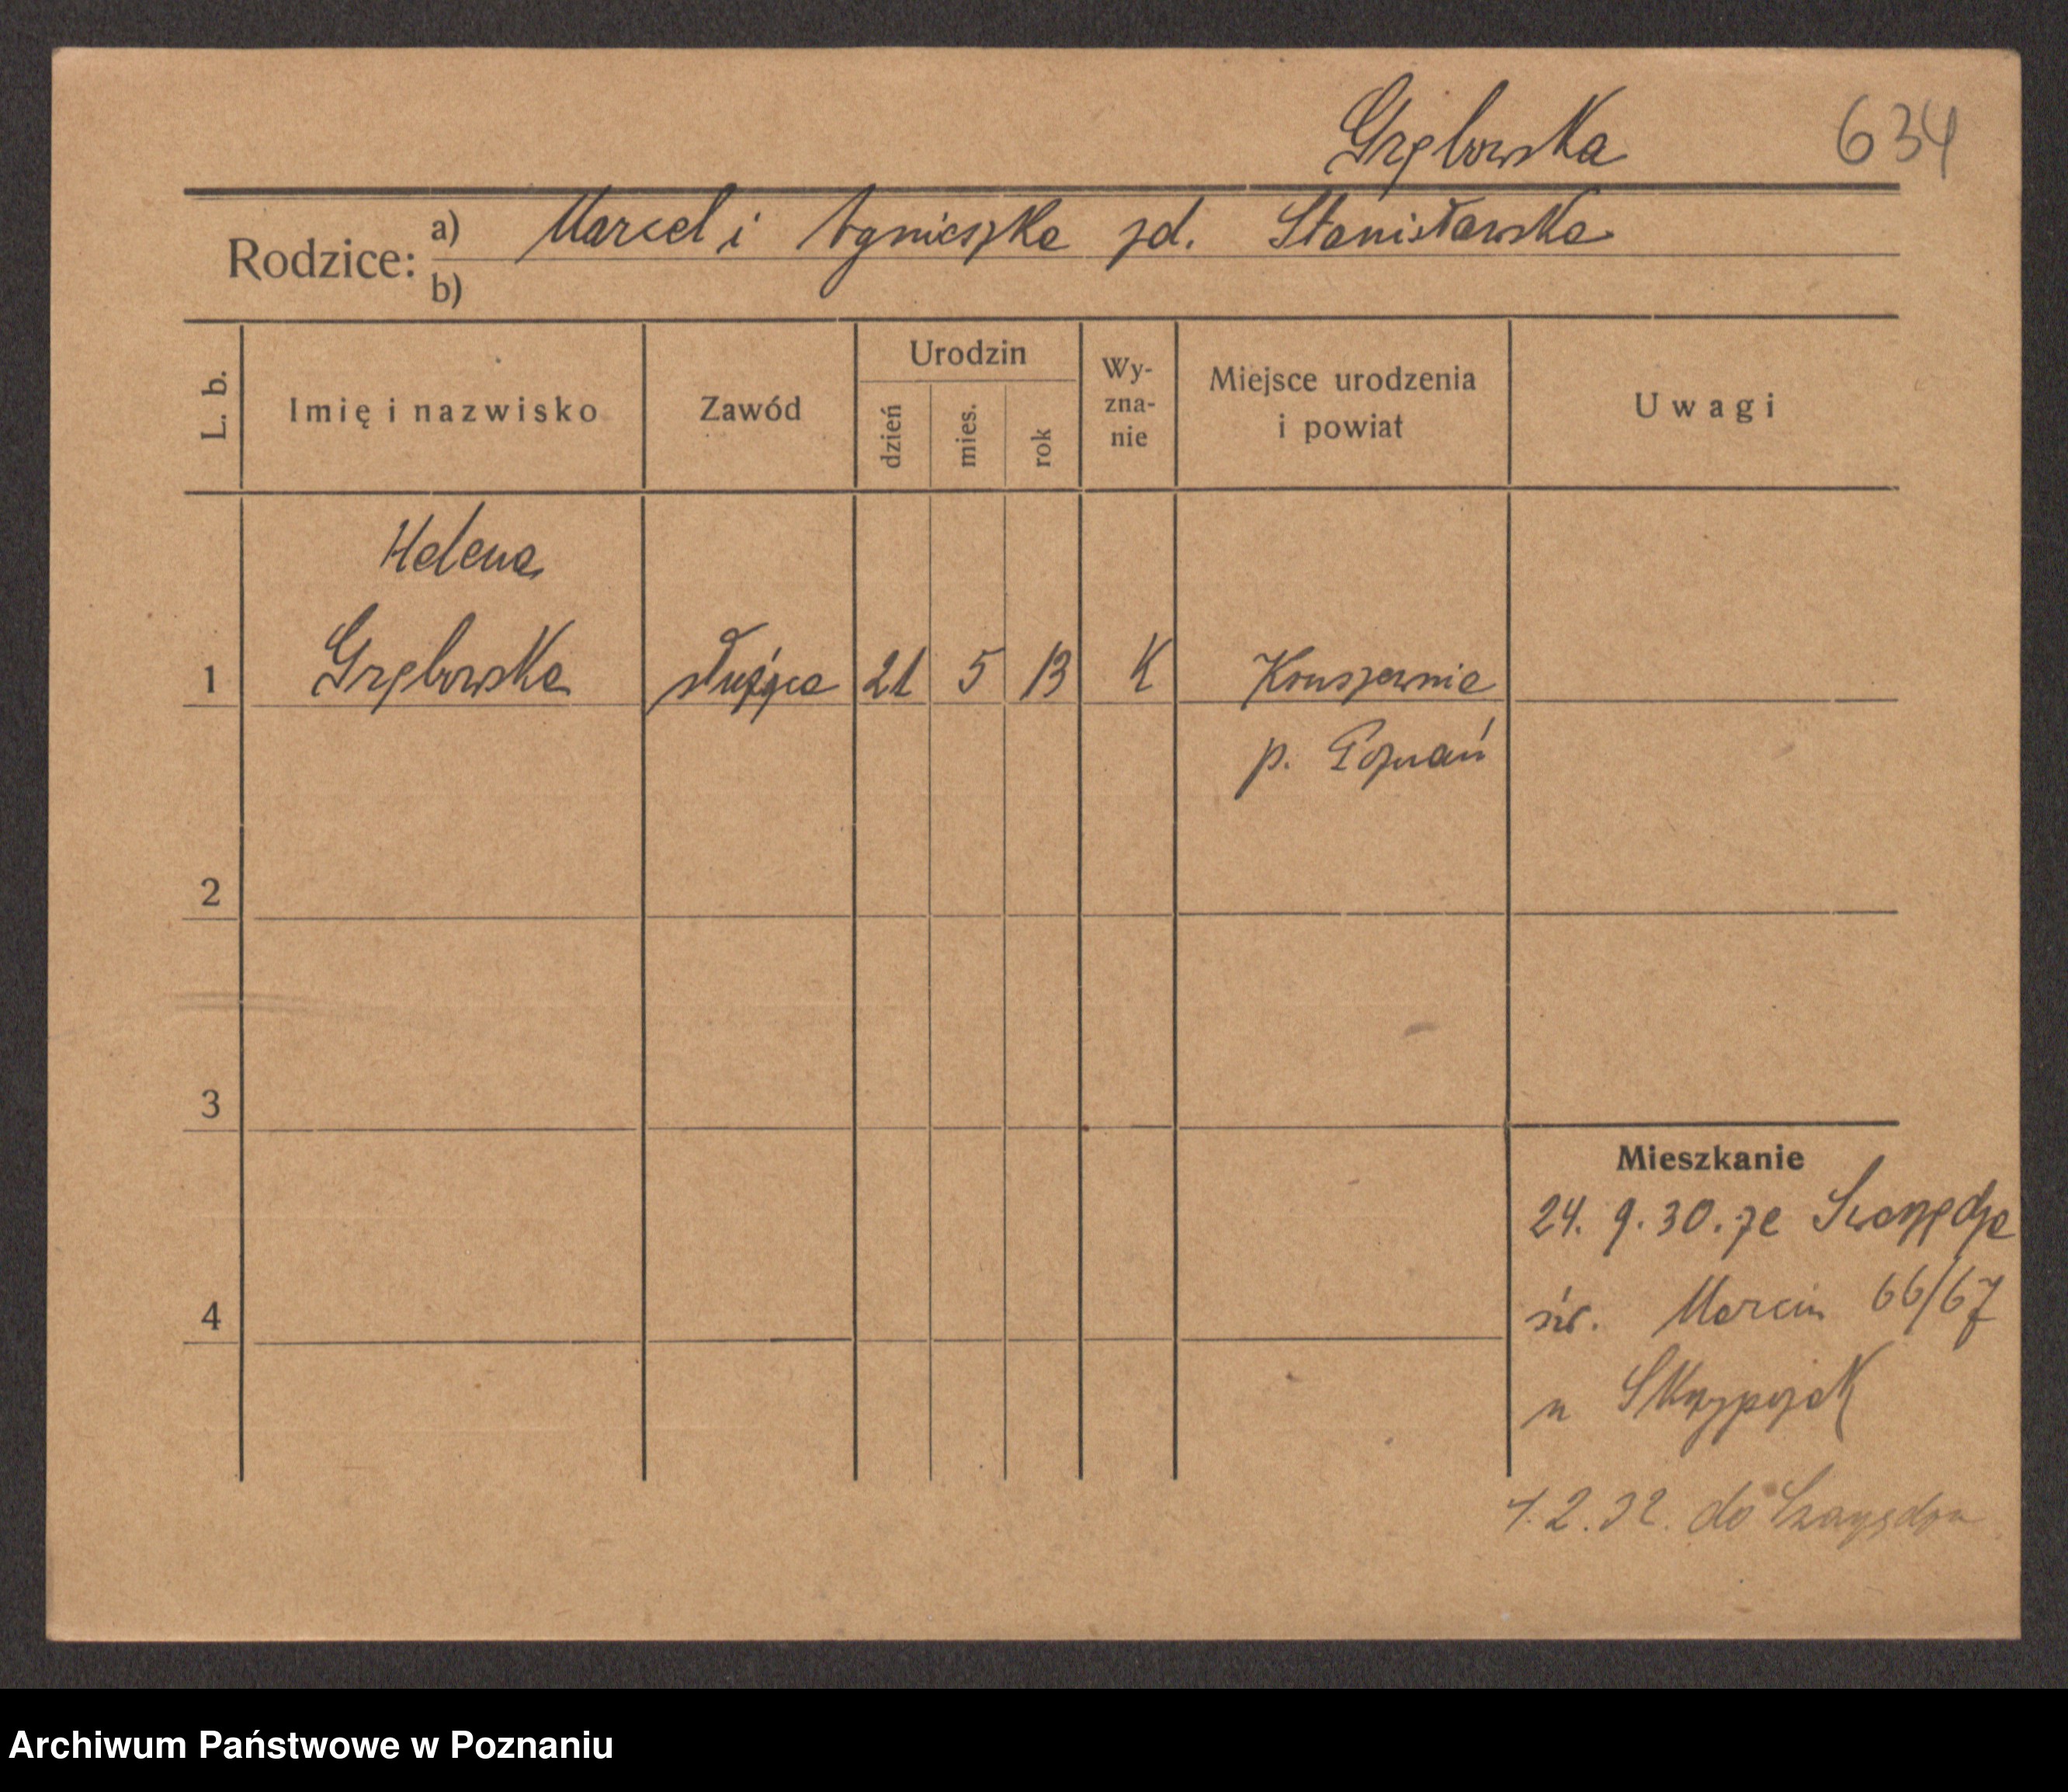 Grzębowska 634
Rodzice: a) Marcel i Agnieszka zd. Stanisławska
b)
L. b. Imię i nazwisko Zawód Urodzin dzień mies. rok Wy-zna-nie Miejsce urodzenia i powiat Uwagi
Helena
1 Grzębowska służąca 21 5 13 K Kruszewnia
p. Poznań
2
3
Mieszkanie
24. 9. 30. ze
św. Marcin 66/67
4
u Skrzypczak
1. 2. 32. do
Archiwum Państwowe w Poznaniu